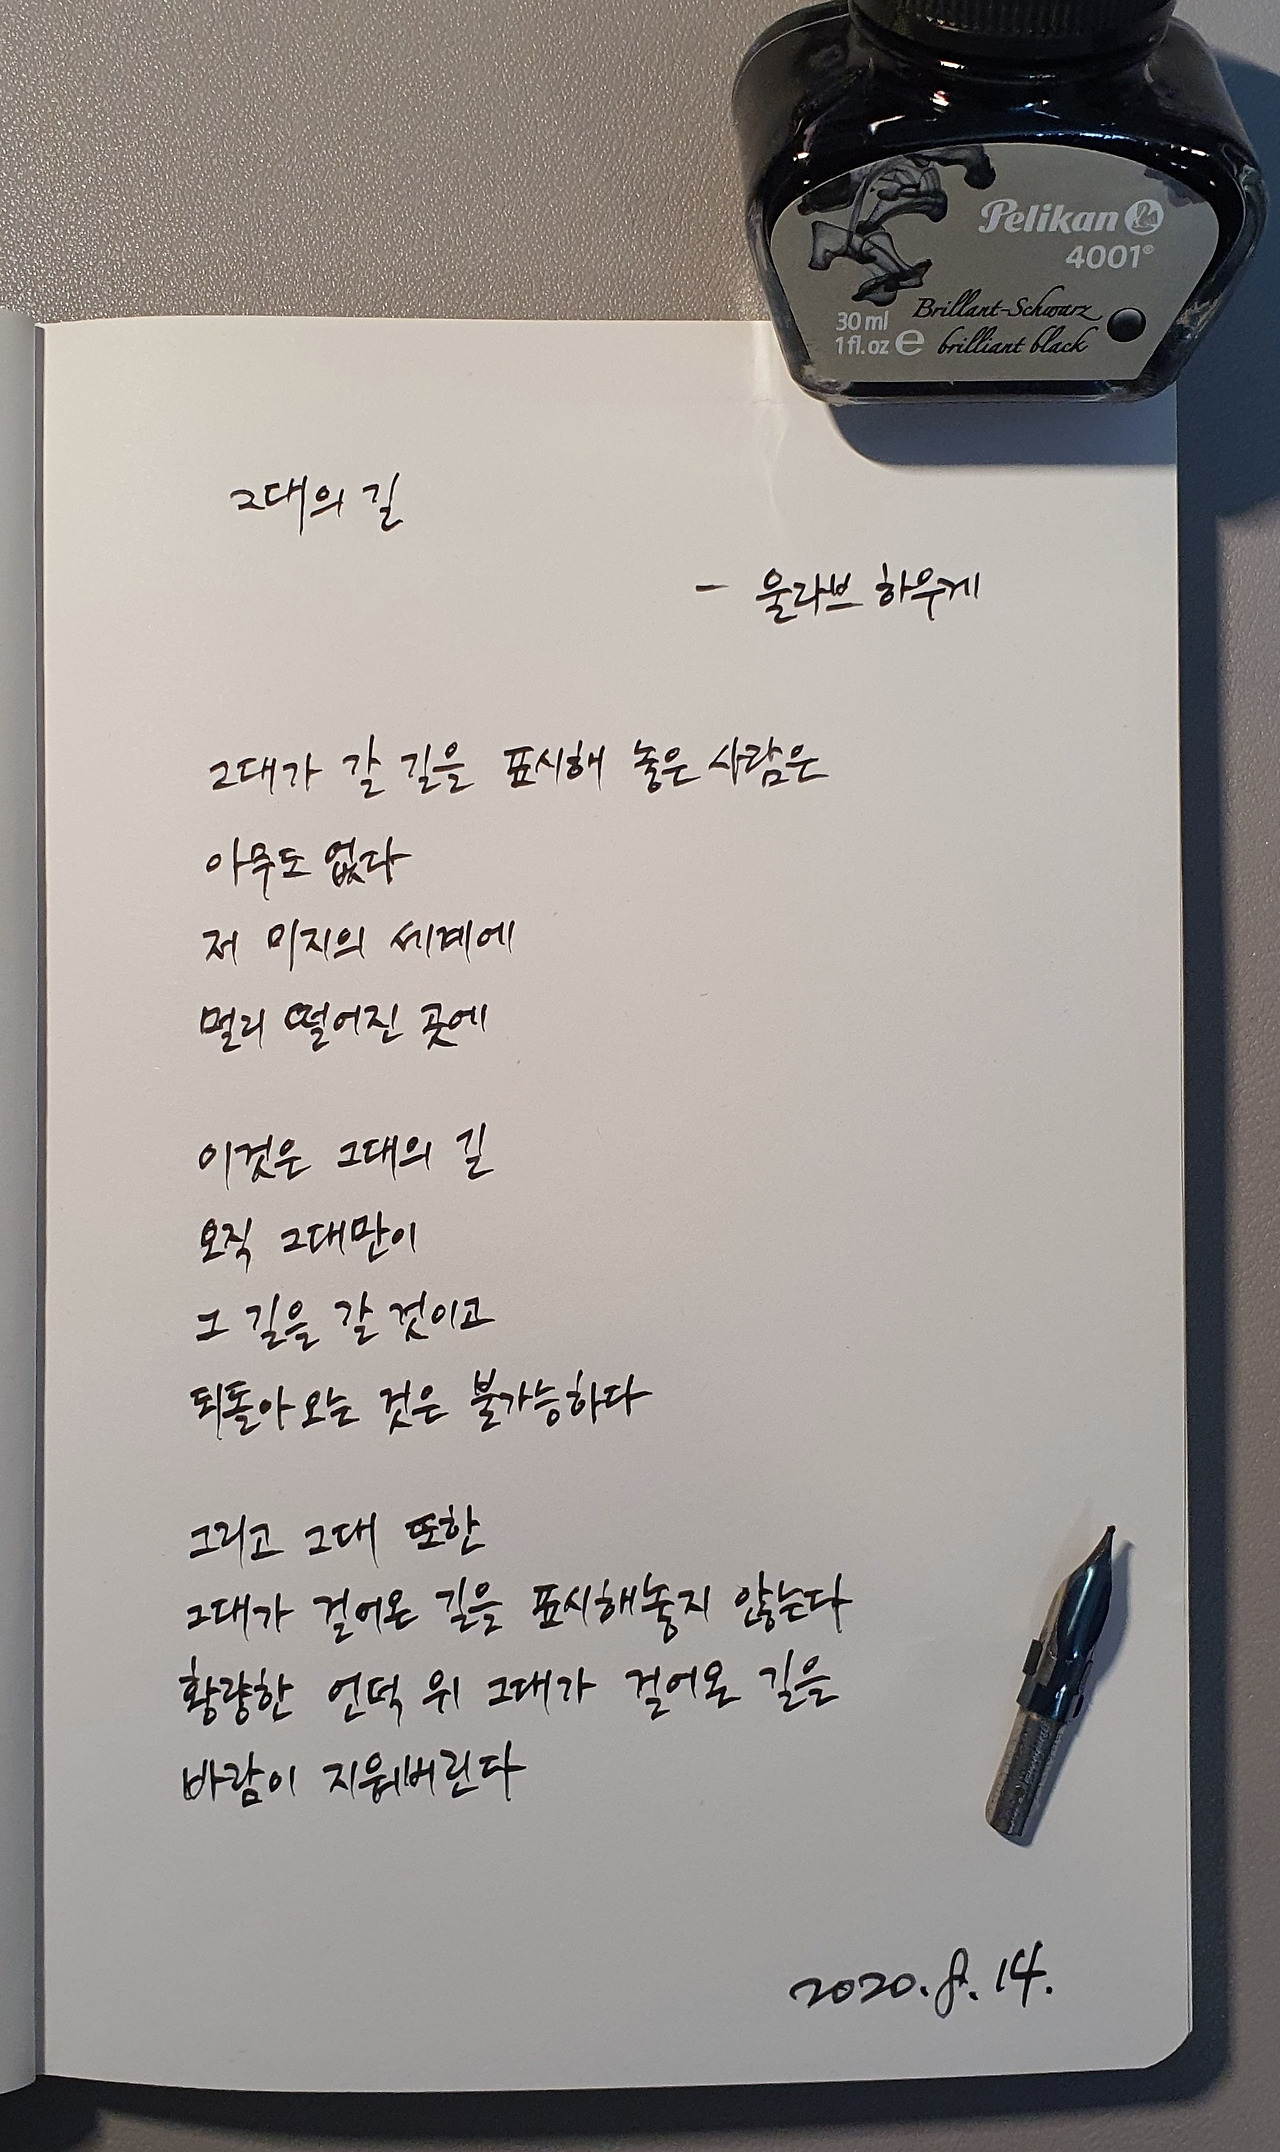 Pelikan
4001®
Brillant-Schwarz
30 ml
1 fl. oz e brilliant black
그대의 길
- 울라브 하우게
그대가 갈 길을 표시해 놓은 사람은
아무도 없다
저 미지의 세계에
멀리 떨어진 곳에
이것은 그대의 길
오직 그대만이
그 길을 갈 것이고
되돌아오는 것은 불가능하다
그리고 그대 또한
그대가 걸어온 길을 표시해놓지 않는다
황량한 언덕 위 그대가 걸어온 길을
바람이 지워버린다
2020. 8. 14.